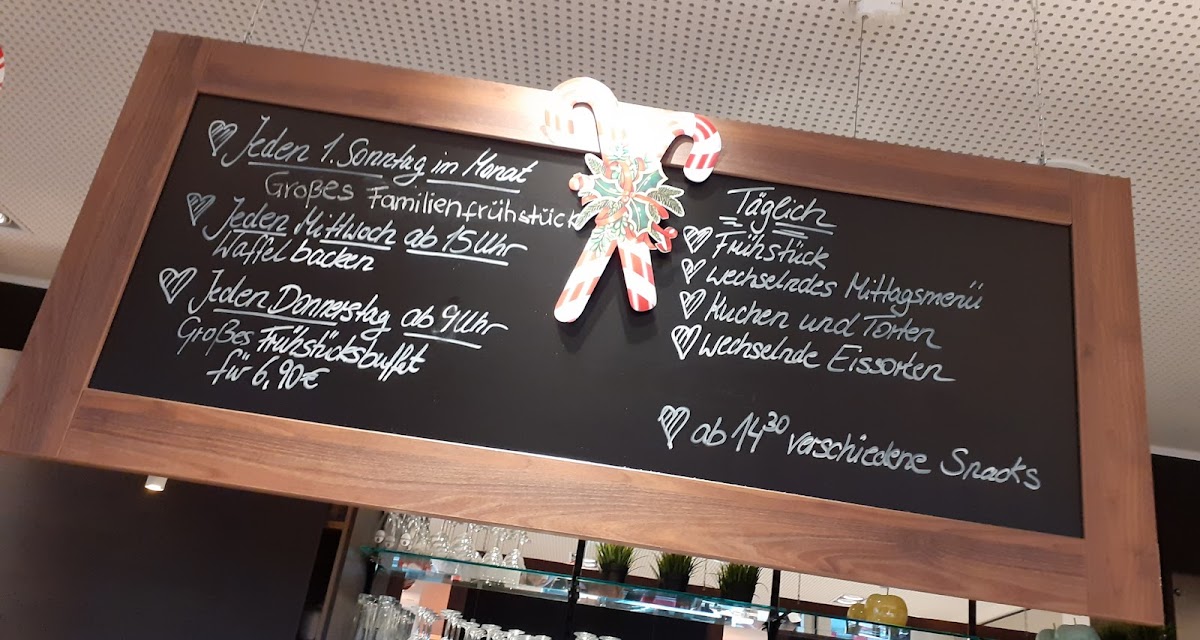 Jeden 1. Sonntag im Monat
Großes Familienfrühstück
Jeden Mittwoch ab 15 Uhr
Waffel backen
Jeden Donnerstag ab 9 Uhr
Großes Frühstücksbuffet
für 6,90€
Täglich
Frühstück
Wechselndes Mittagsmenü
Kuchen und Torten
Wechselnde Eissorten
ab 14³⁰ verschiedene Snacks